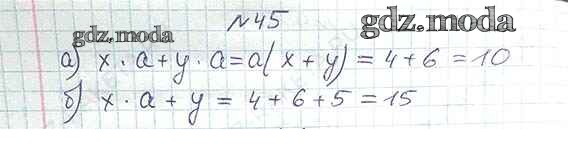 №45
gdz.moda
gdz.moda
а) x · a + y · a = a(x + y) = 4 + 6 = 10
б) x · a + y = 4 + 6 + 5 = 15